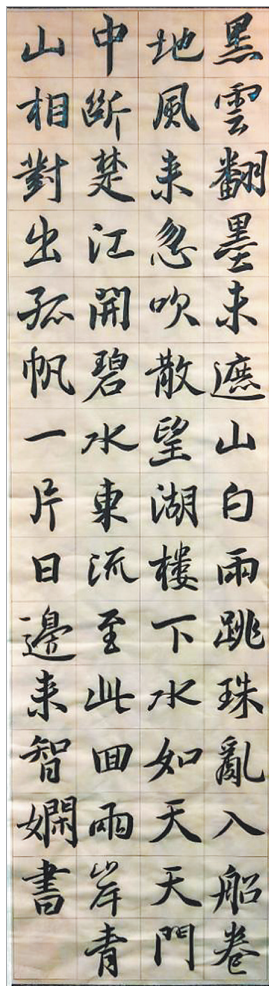 黑雲翻墨未遮山白雨跳珠亂入船卷
地風来忽吹散望湖樓下水如天天門
中断楚江開碧水東流至此回雨岸青
山相對出孤帆一片日邊来智嫻書